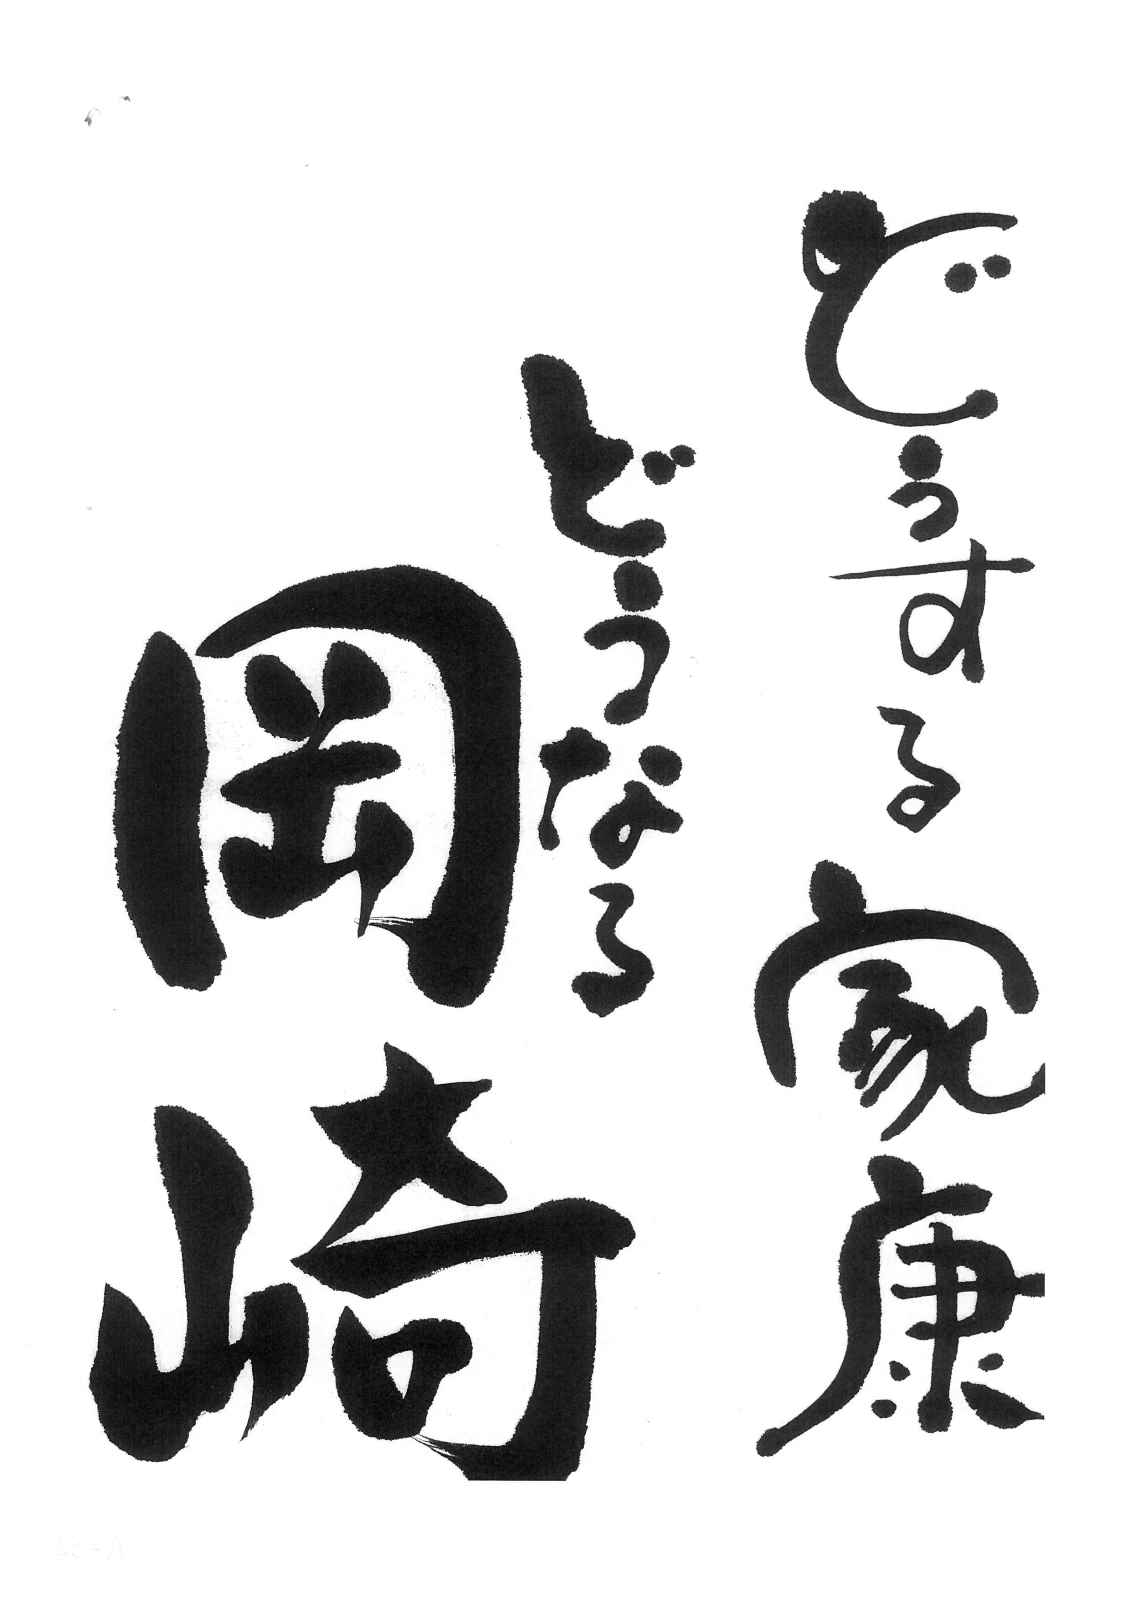 どうする家康
どうなる
岡崎